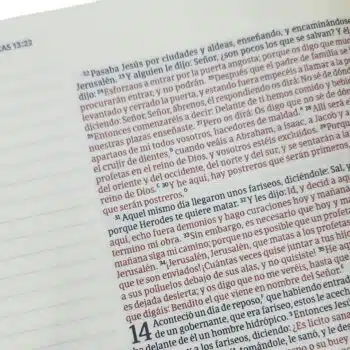 AS 13:22
22 Pasaba Jesús por ciudades y aldeas, enseñando, y encaminándose
Jerusalén. 23 Y alguien le dijo: Señor, ¿son pocos los que se salvan? Y él
dijo: 24 Esforzaos a entrar por la puerta angosta; porque os digo que muc
procurarán entrar, y no podrán. 25 Después que el padre de familia se
levantado y cerrado la puerta, y estando fuera empecéis a llamar a la p
diciendo: Señor, Señor, ábrenos, él respondiendo os dirá: No sé de dónd
26 Entonces comenzaréis a decir: Delante de ti hemos comido y bebido
nuestras plazas enseñaste. 27 Pero os dirá: Os digo que no sé de dón
apartaos de mí todos vosotros, hacedores de maldad. 28 Allí será e
el crujir de dientes, cuando veáis a Abraham, a Isaac, a Jacob y a
profetas en el reino de Dios, y vosotros estéis excluidos. 29 Porqu
del oriente y del occidente, del norte y del sur, y se sentarán a la
reino de Dios. 30 Y he aquí, hay postreros que serán primeros,
que serán postreros.
31 Aquel mismo día llegaron unos fariseos, diciéndole: Sal, y
porque Herodes te quiere matar. 32 Y les dijo: Id, y decid a aq
aquí, echo fuera demonios y hago curaciones hoy y mañana
termino mi obra. 33 Sin embargo, es necesario que hoy y m
mañana siga mi camino; porque no es posible que un profet
Jerusalén. 34 ¡Jerusalén, Jerusalén, que matas a los profetas
que te son enviados! ¡Cuántas veces quise juntar a tus hijo
a sus polluelos debajo de sus alas, y no quisiste! 35 He aq
es dejada desierta; y os digo que no me veréis, hasta que
que digáis: Bendito el que viene en nombre del Señor.
14 Aconteció un día de reposo, que habiendo entrad
de un gobernante, que era fariseo, estos le acech
delante de él un hombre hidrópico. 3 Entonces Jesú
a los fariseos, diciendo: ¿Es lícito sana
tomándole, le sanó, y le des
o su buey